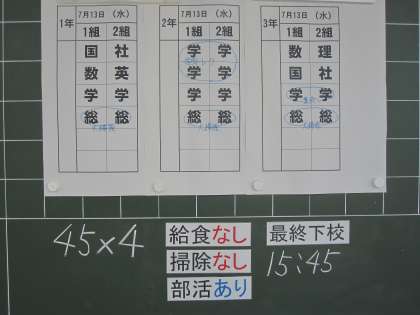 1年 7月13日 (水)
1組 2組
国 社
数 英
学 学
総 総
大掃除
2年 7月13日 (水)
1組 2組
学 学
学 学
学 学
総 総
大掃除
3年 7月13日 (水)
1組 2組
数 理
国 社
学 学
総 総
大掃除
45×4
給食なし
掃除なし
部活あり
最終下校
15:45